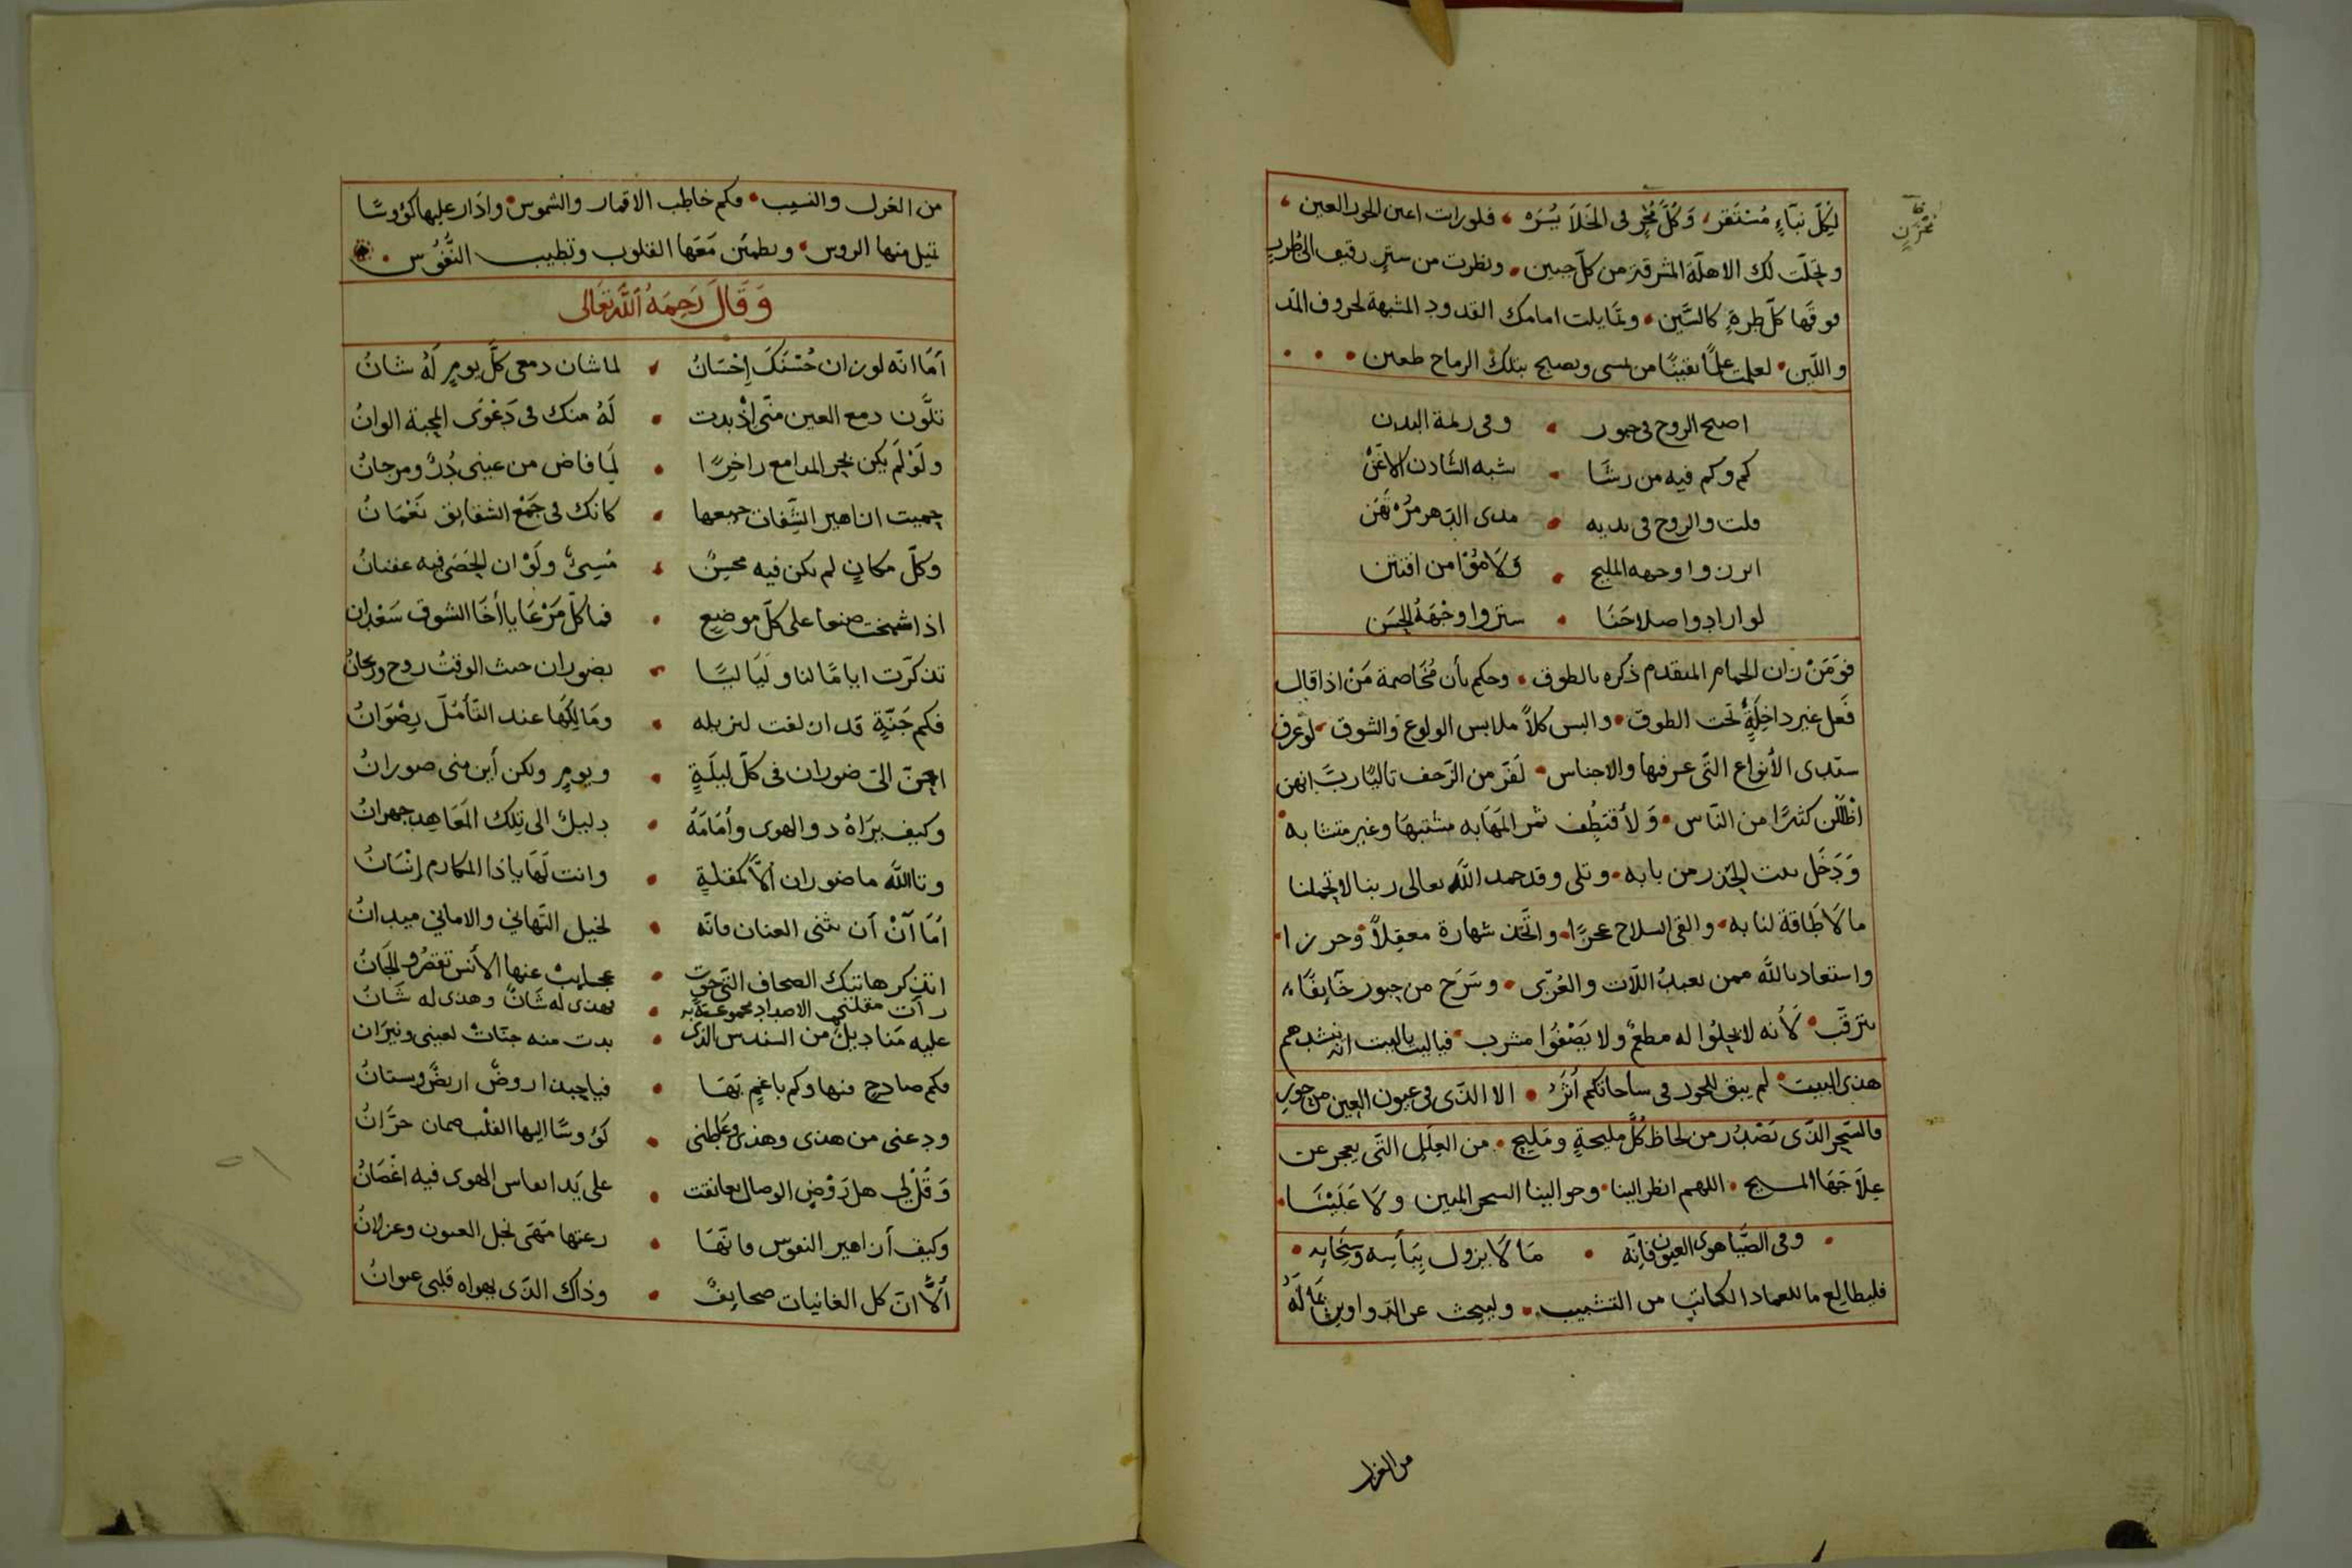 لِكُلّ نبَاءٍ مُسْتَقر، وَكُلّ مُجْرٍ فى الخَلاَ يُسَرَه، فلو رات اعين الحور العين،
وتجَلّت لك الاهلّة المشرقة من كلّ جبين، ونظرت من سترٍ رقيق الى طُررٍ
فوقَها كلّ طرةٍ كالسِّين، وتمايلت امامك القدود المشبهة لحروف المد
واللّين، لعلمت علمًا يقينًا من يمسى ويصبح بتلك الرماح طعين
اصبح الروح فى حبور • وفى رمة البدن
كم وكم فيه من رشَا • شبه الشّادن الاغَنّ
قلت والروح فى يديه • مدى الدّهر مُرْتهَن
ابرزوا وجهه المليح • وَلاَمُوْا من افتتن
لو ارادوا صلاحَنَا • ستروا وجْهَهُ الحسَن
فوَمَنْ زان الحمام المتقدم ذكره بالطوق • وحكم بأن مُخَاصمة مَنْ اذا قال
فَعل غير داخِلَةٍ تحت الطوق • والبس كلاً ملابس الولوع والشوق • لو عرف
سيّدى الأنواع التّى عرفها والاجناس • لَفرّ من الزّحف تاليًا ربّ انهن
اضْلَلْن كثيرًا من النّاس • وَلأقتطِف ثمر المَهَابه مشتبهَا وغير متشابه
وَدَخَل بيت الحَذر من بابه • وتلى وقد حمد اللّه تعالى ربنا لا تحَملنا
ما لاَ طَاقة لنا به • والقى السلاح عجزًا • واتّخَذ شهارة معقِلاً وحرزا
واستعاد باللّه ممن يعبدُ اللّات والعُزّى • وسَرَح من حبور خَآيفًا
يترقّب • لأنه لا يحِلُوا له مطعمٌ ولا يَصْفُوا مشرب • فياليت ياليت انه ينشدهم
هذى البيت • لم يبق للجور فى ساحاتكم أثَرٌ • الا الذّى فى عيون العِين من حورِ
فالسّحر الذّى يَصْدُر من لحاظ كُلّ مليحةٍ ومَليح • من العِلَل التّى يعجر عن
عِلاَجَهَا المسيح • اللهم انظر الينا • وحوالينا السحر المبين ولاَ عَلَيْنَا
وفى الصِّبا هوى العيون فانّه • مَا لاَ يزول ببَأسِه وسِحَابِه
فليطالع ما للعماد الكاتب من التشبيب • وليبحث عن الدّواوين
من الغزل
من الغزل والنسيب • فكم خاطب الاقمار والشموس • وادَار عليها كؤوسًا
تميل منها الروس • وتطمئن مَعَها القلوب وتطيب النُّفُوس
وَقَالَ رَحِمَهُ اللَّه تعَالى
اَمَا انّه لو زان حُسْنَكَ إِحْسَانُ • لما شان دمعى كلّ يومٍ لَهُ شانُ
تلَّون دمع العين منّى اذْ بدت • لَهُ منك فى دَعْوَى المحبة الوانُ
ولَوْ لَم يكن بحر المدامع زاخِرًا • لمَا فاض من عينى دُرٌّ ومرجانُ
حميت ازاهير الشِّفان جميعها • كانك فى جَمْع الشقايق نعْمَانُ
وكلّ مكانٍ لم يكن فيه محسِنٌ • مُسِيئ ولَوْ ان الحَصَى فيه عقيانُ
اذا شمخت صنعا على كلّ موضعٍ • فما كلّ مَرْعَا يا أَخَا الشوق سَعْدان
تذكرّت ايامًا لنا ولَيَاليًا • بضوران حيث الوقتُ روح وريحانُ
فكم جَنّةٍ قد ازلفت لنزيله • ومَالِكهَا عند التّأمّل رِضْوَانُ
احِنّ الىَ ضوران فى كلّ ليلَةٍ • ويومٍ ولكن أين منى ضورانُ
وكيف يرَاهُ ذو الهوى وأمَامَهُ • دليلٌ الى تلك المَعَاهِد جهرانُ
وتاالله ما ضوران اِلاّ كمقلةٍ • وانت لَهَا يا ذا المكارم إنْسَانُ
اَمَا آنْ أن يثنى العنان فانّه • لخيل التّهاني والاماني ميدانُ
اتذكر هاتيك الصحاف التّى حوت • عجايبٌ عنها الأنس تقصُر والجَانُ
رات مقلتى الاضداد مجموعة به • فهذى له شَانٌ وهذى له شَانُ
عليه مَناديلٌ من السندس الذى • بدت منه جنّات لعينى ونيرَان
فكم صادحٍ فيها وكم باغمٍ بهَا • فياحبذا روضٌ اريضٌ وبستانُ
ودعنى من هذى وهذى وعَاطِنى • كؤوسًا اليها القلْب ضمان حرّانُ
وَقُلْ لى هل رَوْضِ الوصال تعانقت • على يَد انعاس الهوى فيه اغْصَانُ
وكيف أزاهير النفوس فانّهَا • رعتها مَهَى نجل العيون وغزلانُ
ألاَّ انّ كل الغانيات صحايفٌ • وذاك الذّى يهواه قلبى عنوانُ